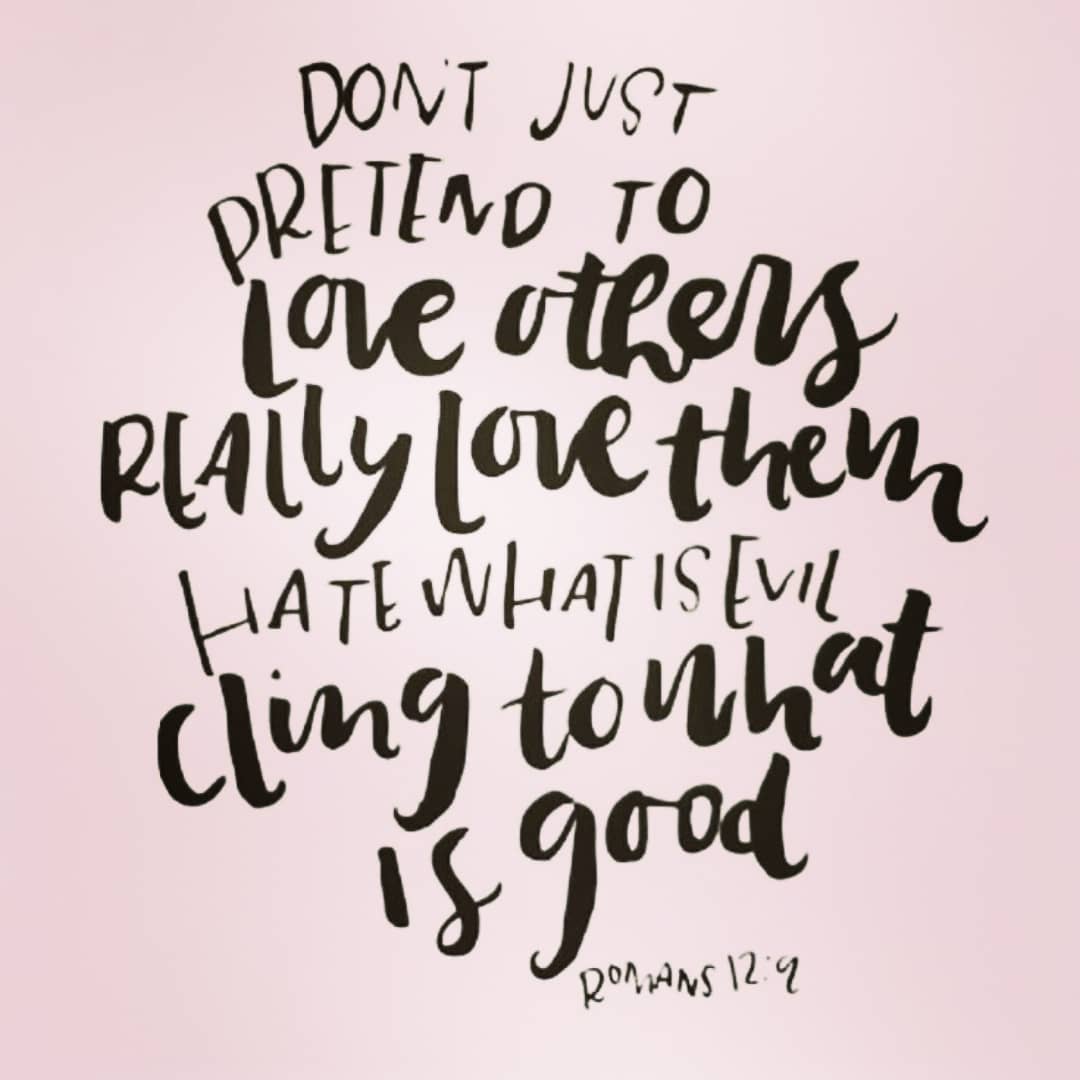 DON'T JUST
PRETEND TO
love others
REALLY love them
HATE WHAT IS EVIL
cling to what
is good
ROMANS 12:9